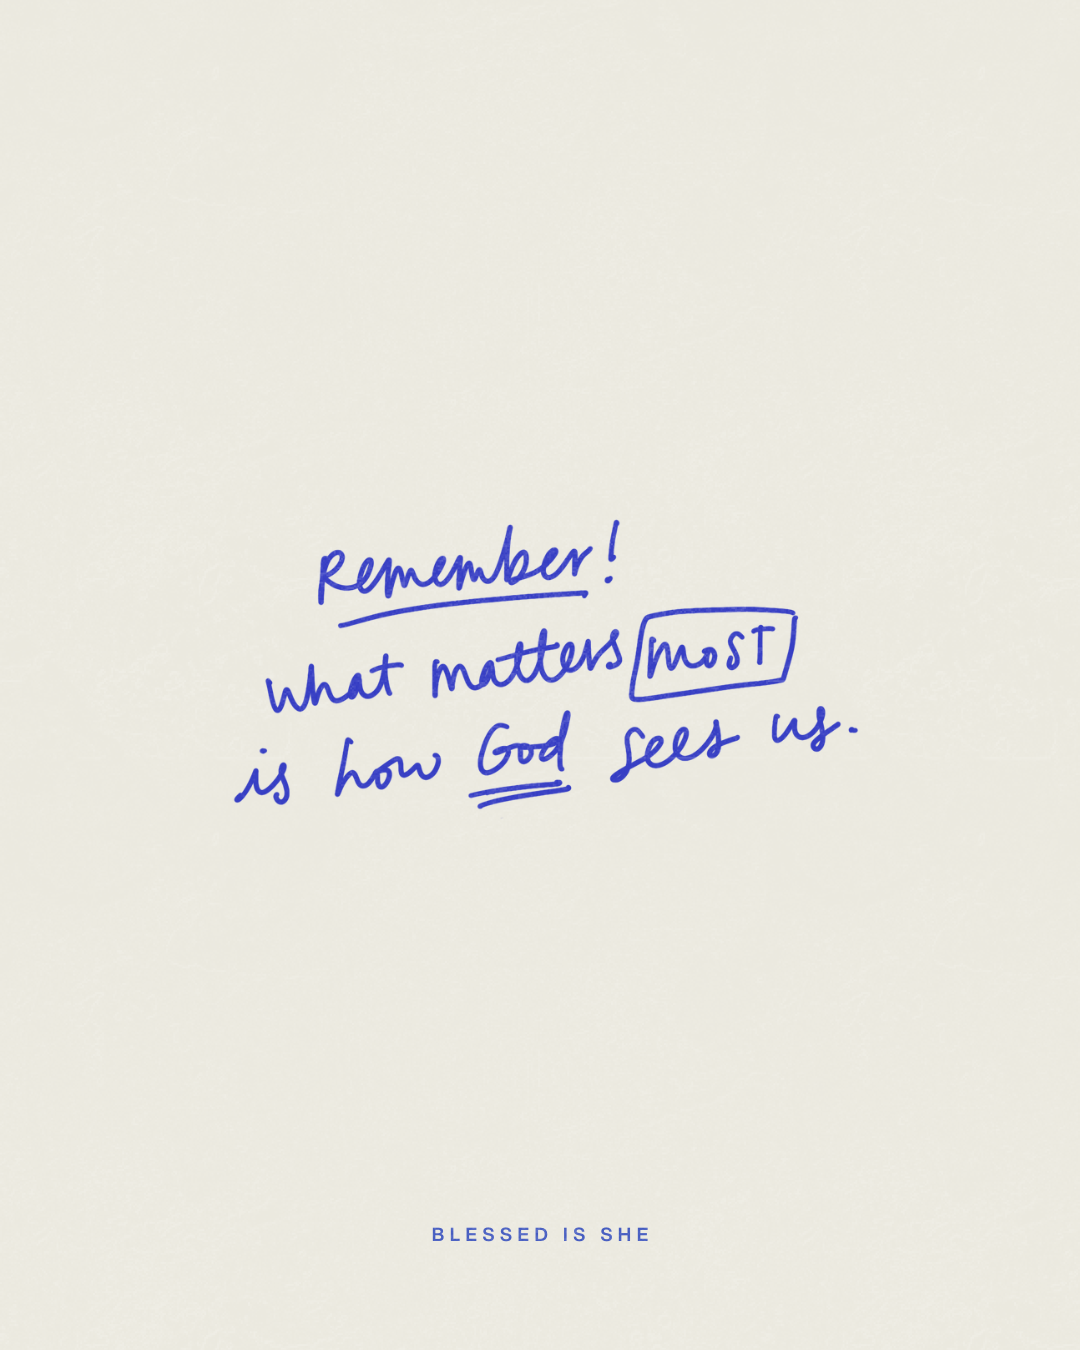 Remember!
what matters most
is how God sees us.
BLESSED IS SHE